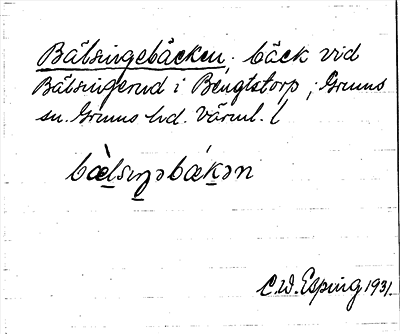 Bälsingebäcken, bäck vid
Bälsingerud i Bengtstorp, Grums
sn. Grums hd. Värml. l
bæ̀lsiŋəbækən
C.W. Esping 1931.